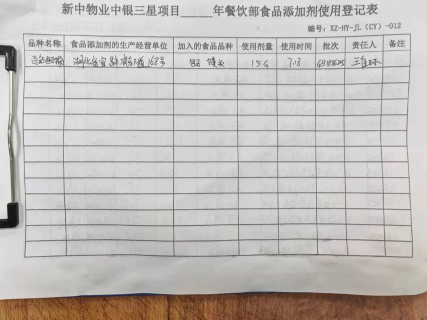 新中物业中银三星项目_____年餐饮部食品添加剂使用登记表
编号：XZ-HY-JL（CY）-012
品种名称 食品添加剂的生产经营单位 加入的食品品种 使用剂量 使用时间 批次 责任人 备注
湖北省宜 168号 馒头 15g 7.18